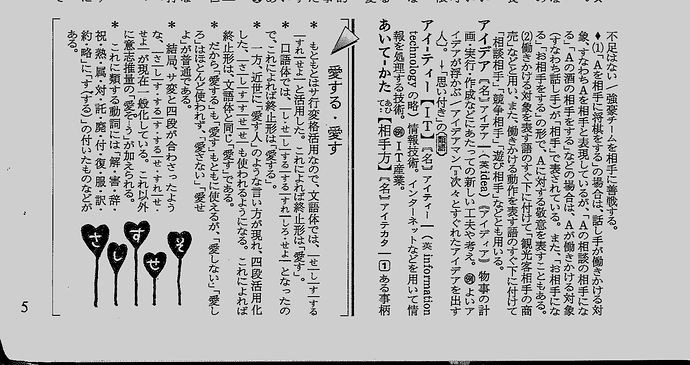 不足はない/強豪チームを相手に善戦する。
♦⑴「Aを相手に将棋をする」の場合は、話し手が働きかける対
象、すなわちAを相手と表現しているが、「Aの相談の相手にな
る」「Aの酒の相手をする」などの場合は、Aが働きかける対象
(すなわち話し手)が「相手」で表されている。また、「お相手にな
る」「お相手をする」の形で、Aに対する敬意を表すこともある。
⑵働きかける対象を表す語のすぐ下に付けて「観光客相手の商
売」などと用い、また、働きかける動作を表す語のすぐ下に付けて
「相談相手」「競争相手」「遊び相手」などとも用いる。
アイデア〖名〗アイデア―(英 idea)《アイディア》 物事の計
画・実行・作成などにあたっての新しい工夫や考え。例よいア
イデアが浮かぶ/アイデアマン(=次々とすぐれたアイデアを出す
人)。→「思い付き」の
アイ-ティー【IT】〖名〗アイティー―(英 information
technology の略) 情報技術。インターネットなどを用いて情
報を処理する技術。例IT産業。
あいて-かた【相手方】〖名〗アイテカタ 1 ある事柄
愛する・愛す
* もともとはサ行変格活用なので、文語体では、「―せ│―し│―す│―する
│―すれ│―せよ」と活用した。これによれば終止形は「愛す」。
* 口語体では、「―し・―せ│―し│―する│―する│―すれ│―しろ・―せよ」となったの
で、これによれば終止形は「愛する」。
* 一方、近世に「愛す人」のような言い方が現れ、四段活用化
した、「―さ│―し│―す│―す│―せ│―せ」も使われるようになる。これによれば
終止形は、文語体と同じ「愛す」である。
* だから「愛する」も「愛す」もともに使えるが、「愛しない」「愛し
ろ」はほとんど使われず、「愛さない」「愛せ
よ」が普通である。
* 結局、サ変と四段が合わさったよう
な、「―さ│―し│―する│―する│―すれ・―せ│―せ・
―せよ」が現在一般化している。これ以外
に意志推量の「愛そ―う」が加えられる。
* これに類する動詞には「解・害・辞・
祝・熟・属・対・託・廃・付・復・服・訳・
約・略」に「す(する)」の付いたものなどが
ある。
さ
し
す
せ
そ
5